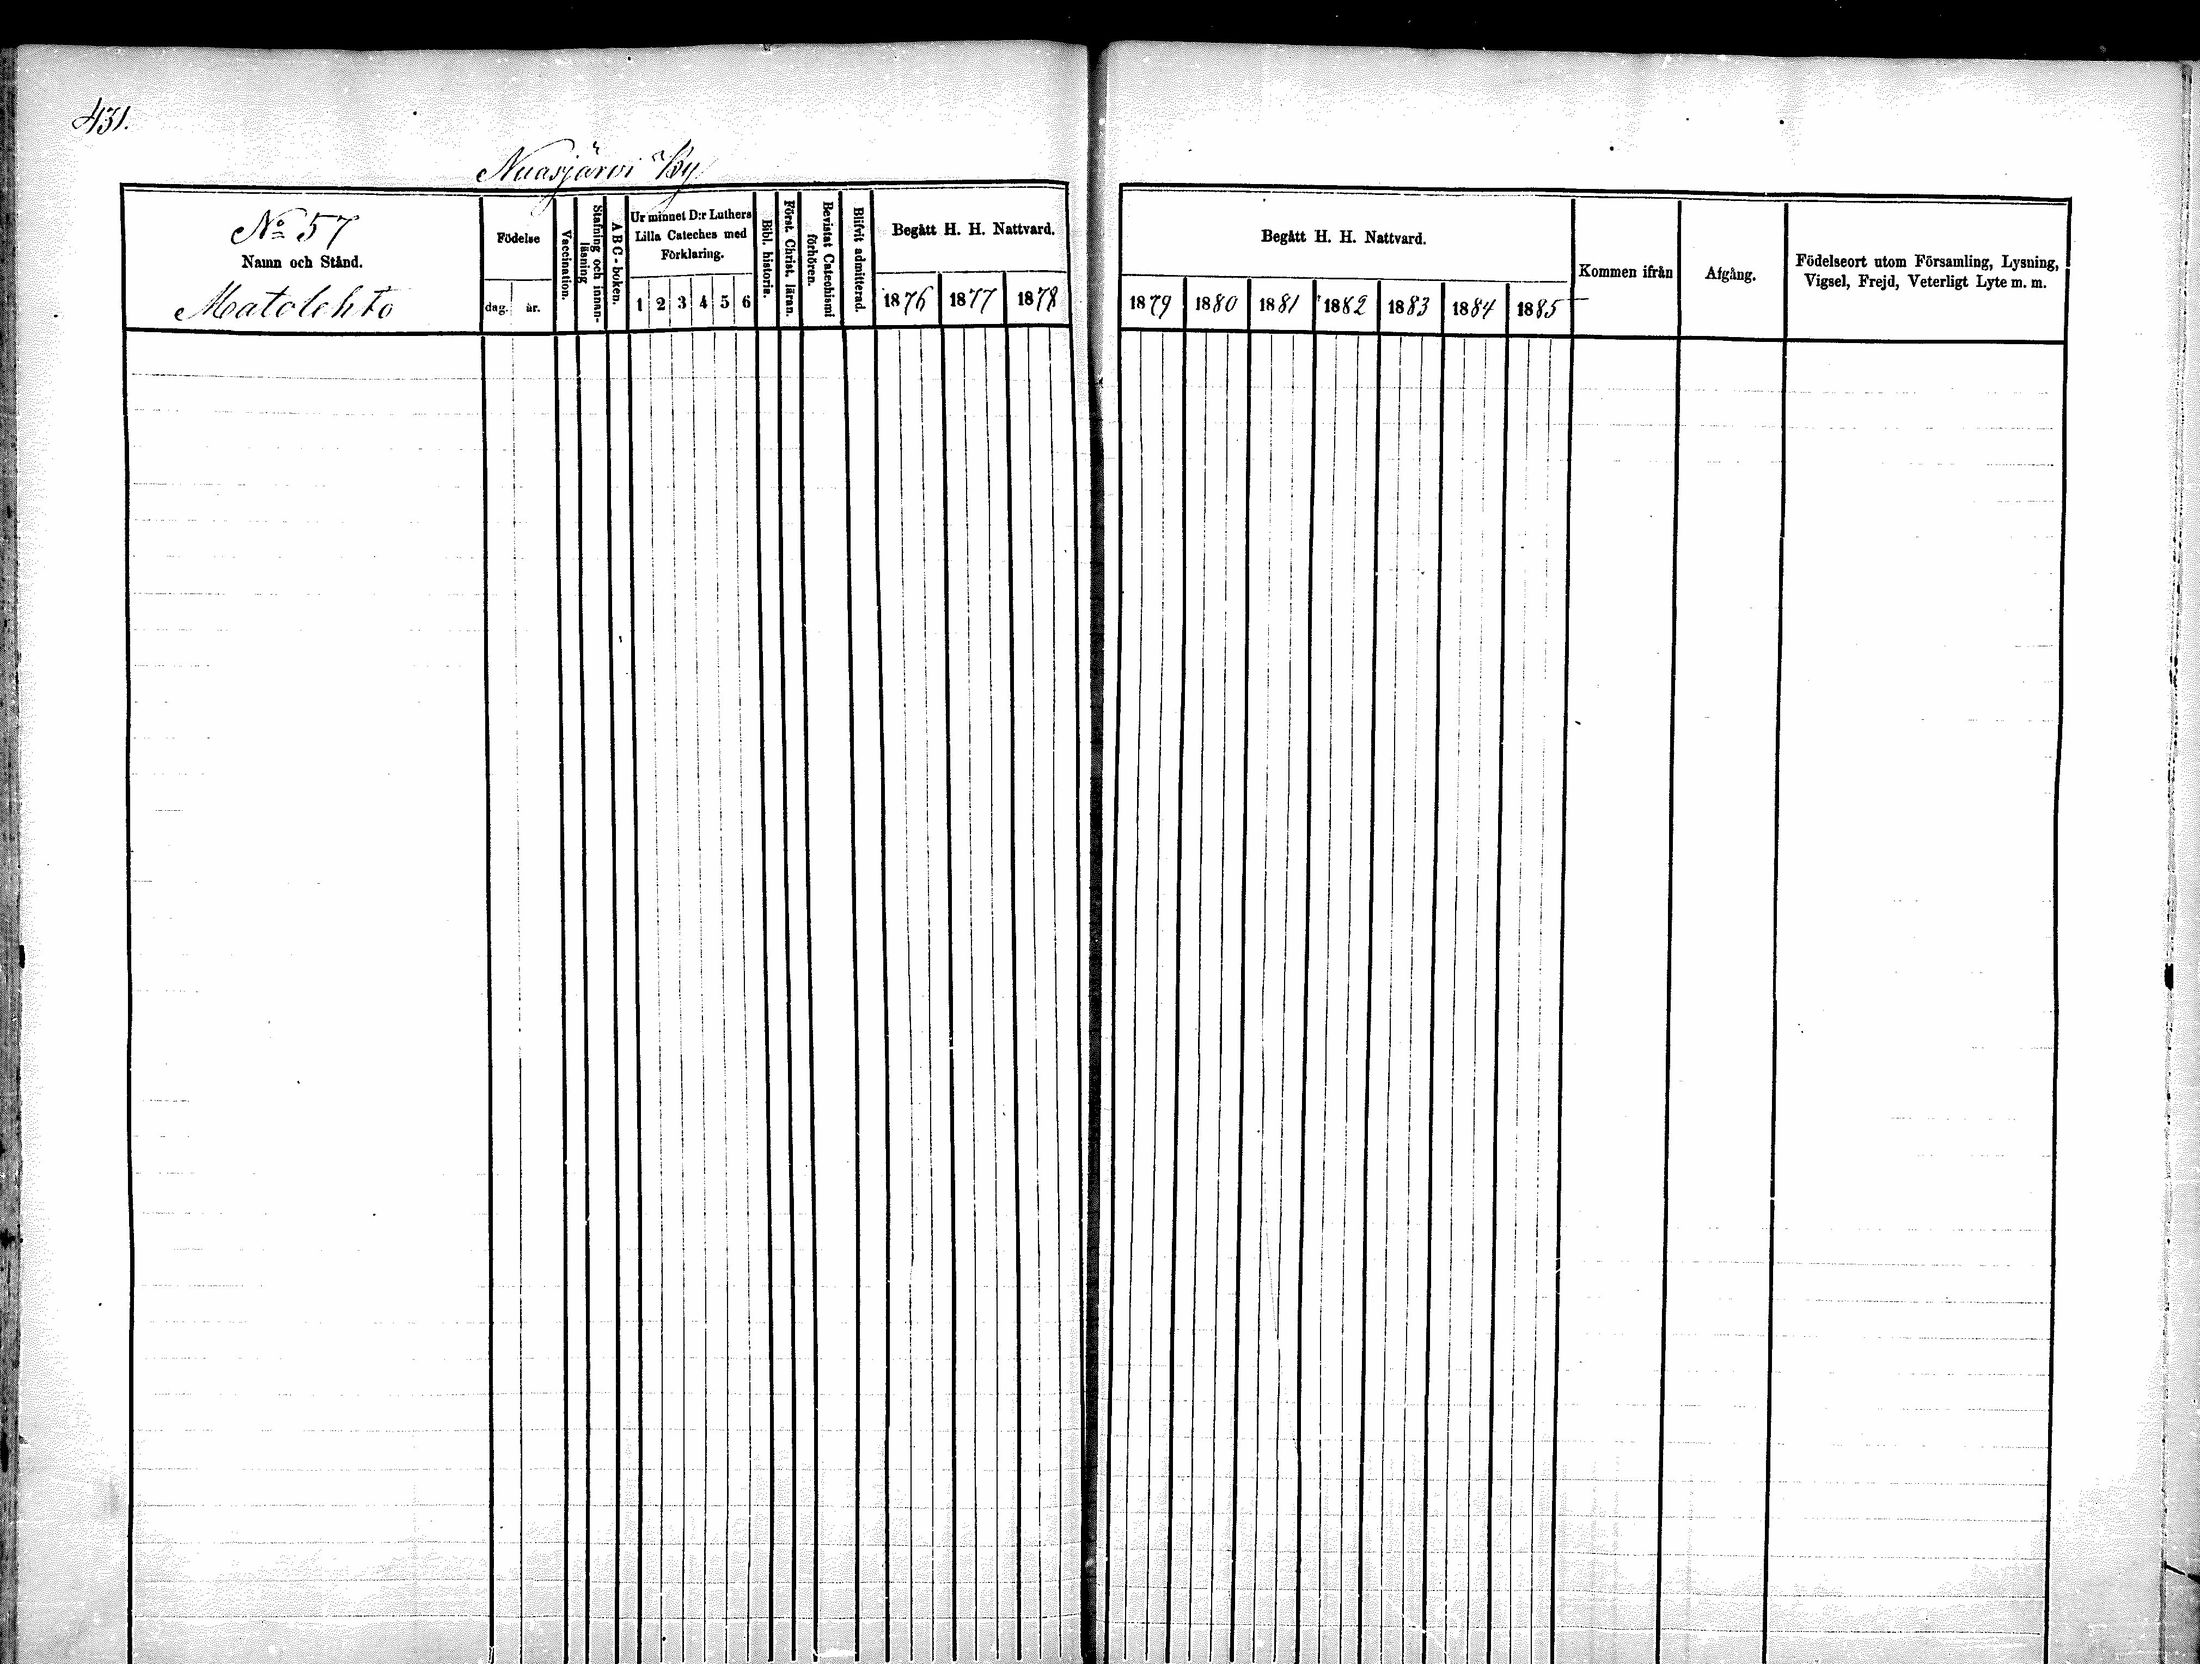 431.
Nuasjärvi By
No 57
Namn och Stånd.
Matolehto
Födelse
dag. år.
Vaccination.
Stafning och innan-
läsning
ABC-boken.
Ur minnet D:r Luthers
Lilla Cateches med
Förklaring.
1 2 3 4 5 6
Bibl. historia.
Först. Christ. läran.
Bevistat Catechismi
förhören.
Blifvit admitterad.
Begått H. H. Nattvard.
1876 1877 1878
Begått H. H. Nattvard.
1879 1880 1881 1882 1883 1884 1885
Kommen ifrån
Afgång.
Födelseort utom Församling, Lysning,
Vigsel, Frejd, Veterligt Lyte m. m.